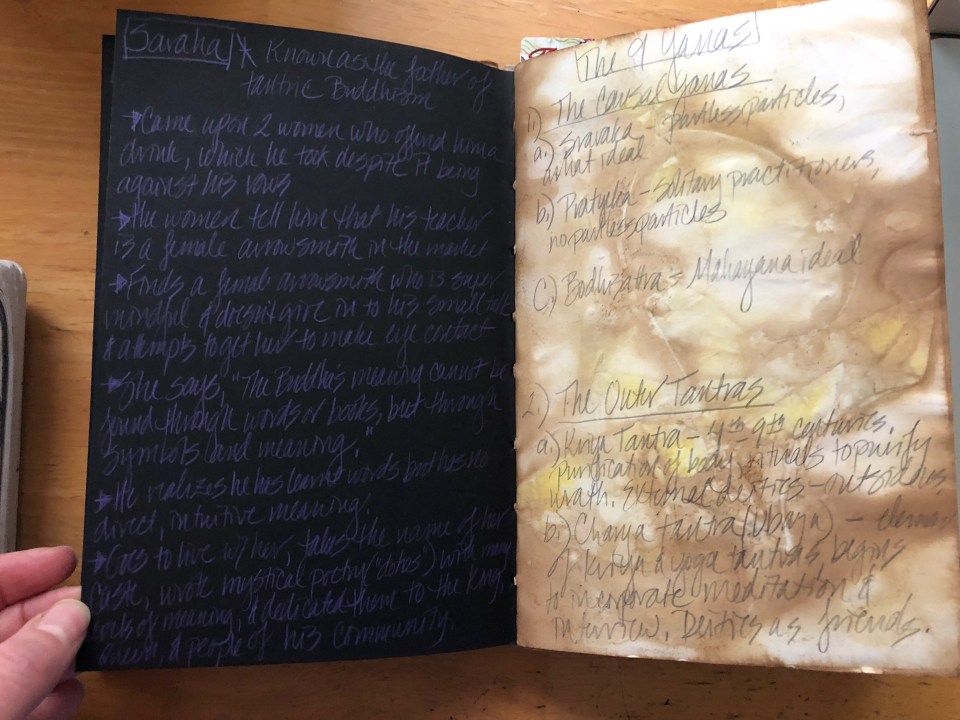 Saraha * Known as the father of
tantric Buddhism
Came upon 2 women who offered him a
drink, which he took despite it being
against his vows
The women tell him that his teacher
is a female arrowsmith in the market
Finds a female arrowsmith who is super
mindful & doesn't give in to his small talk
& attempts to get her to make eye contact
She says, "The Buddha's meaning cannot be
found through words or books, but through
symbols and meaning."
He realizes he has learned words but has no
direct, intuitive meaning!
Goes to live w/ her, takes the name of her
caste, wrote mystical poetry (dohas) with many
of meaning, & dedicated them to the King,
queen & people of his community.
The 9 Yanas
1.) The Causal Yanas
a.) Sravaka - partless particles,
arhat ideal
b.) Pratyeka - solitary practitioners,
no partless particles
C.) Bodhisatva = Mahayana ideal
2.) The Outer Tantras
a.) Kriya Tantra - 4th-9th centuries,
purification of body, rituals to purify
wrath. External deities - outsiders,
b.) Charya tantra (Ubaya) -
of kriya & yoga tantras begins
to incorporate meditation &
Deities as friends.